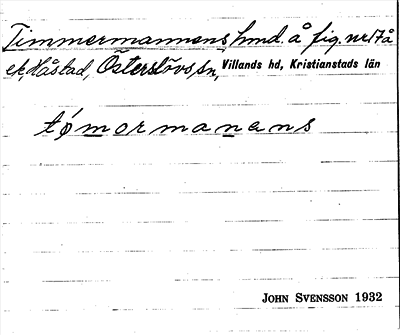 Timmermannens, hmd. å fig. nr 17 å
ek, Håslad, Österslövs sn, Villands hd, Kristianstads län
tømormanens
JOHN SVENSSON 1932